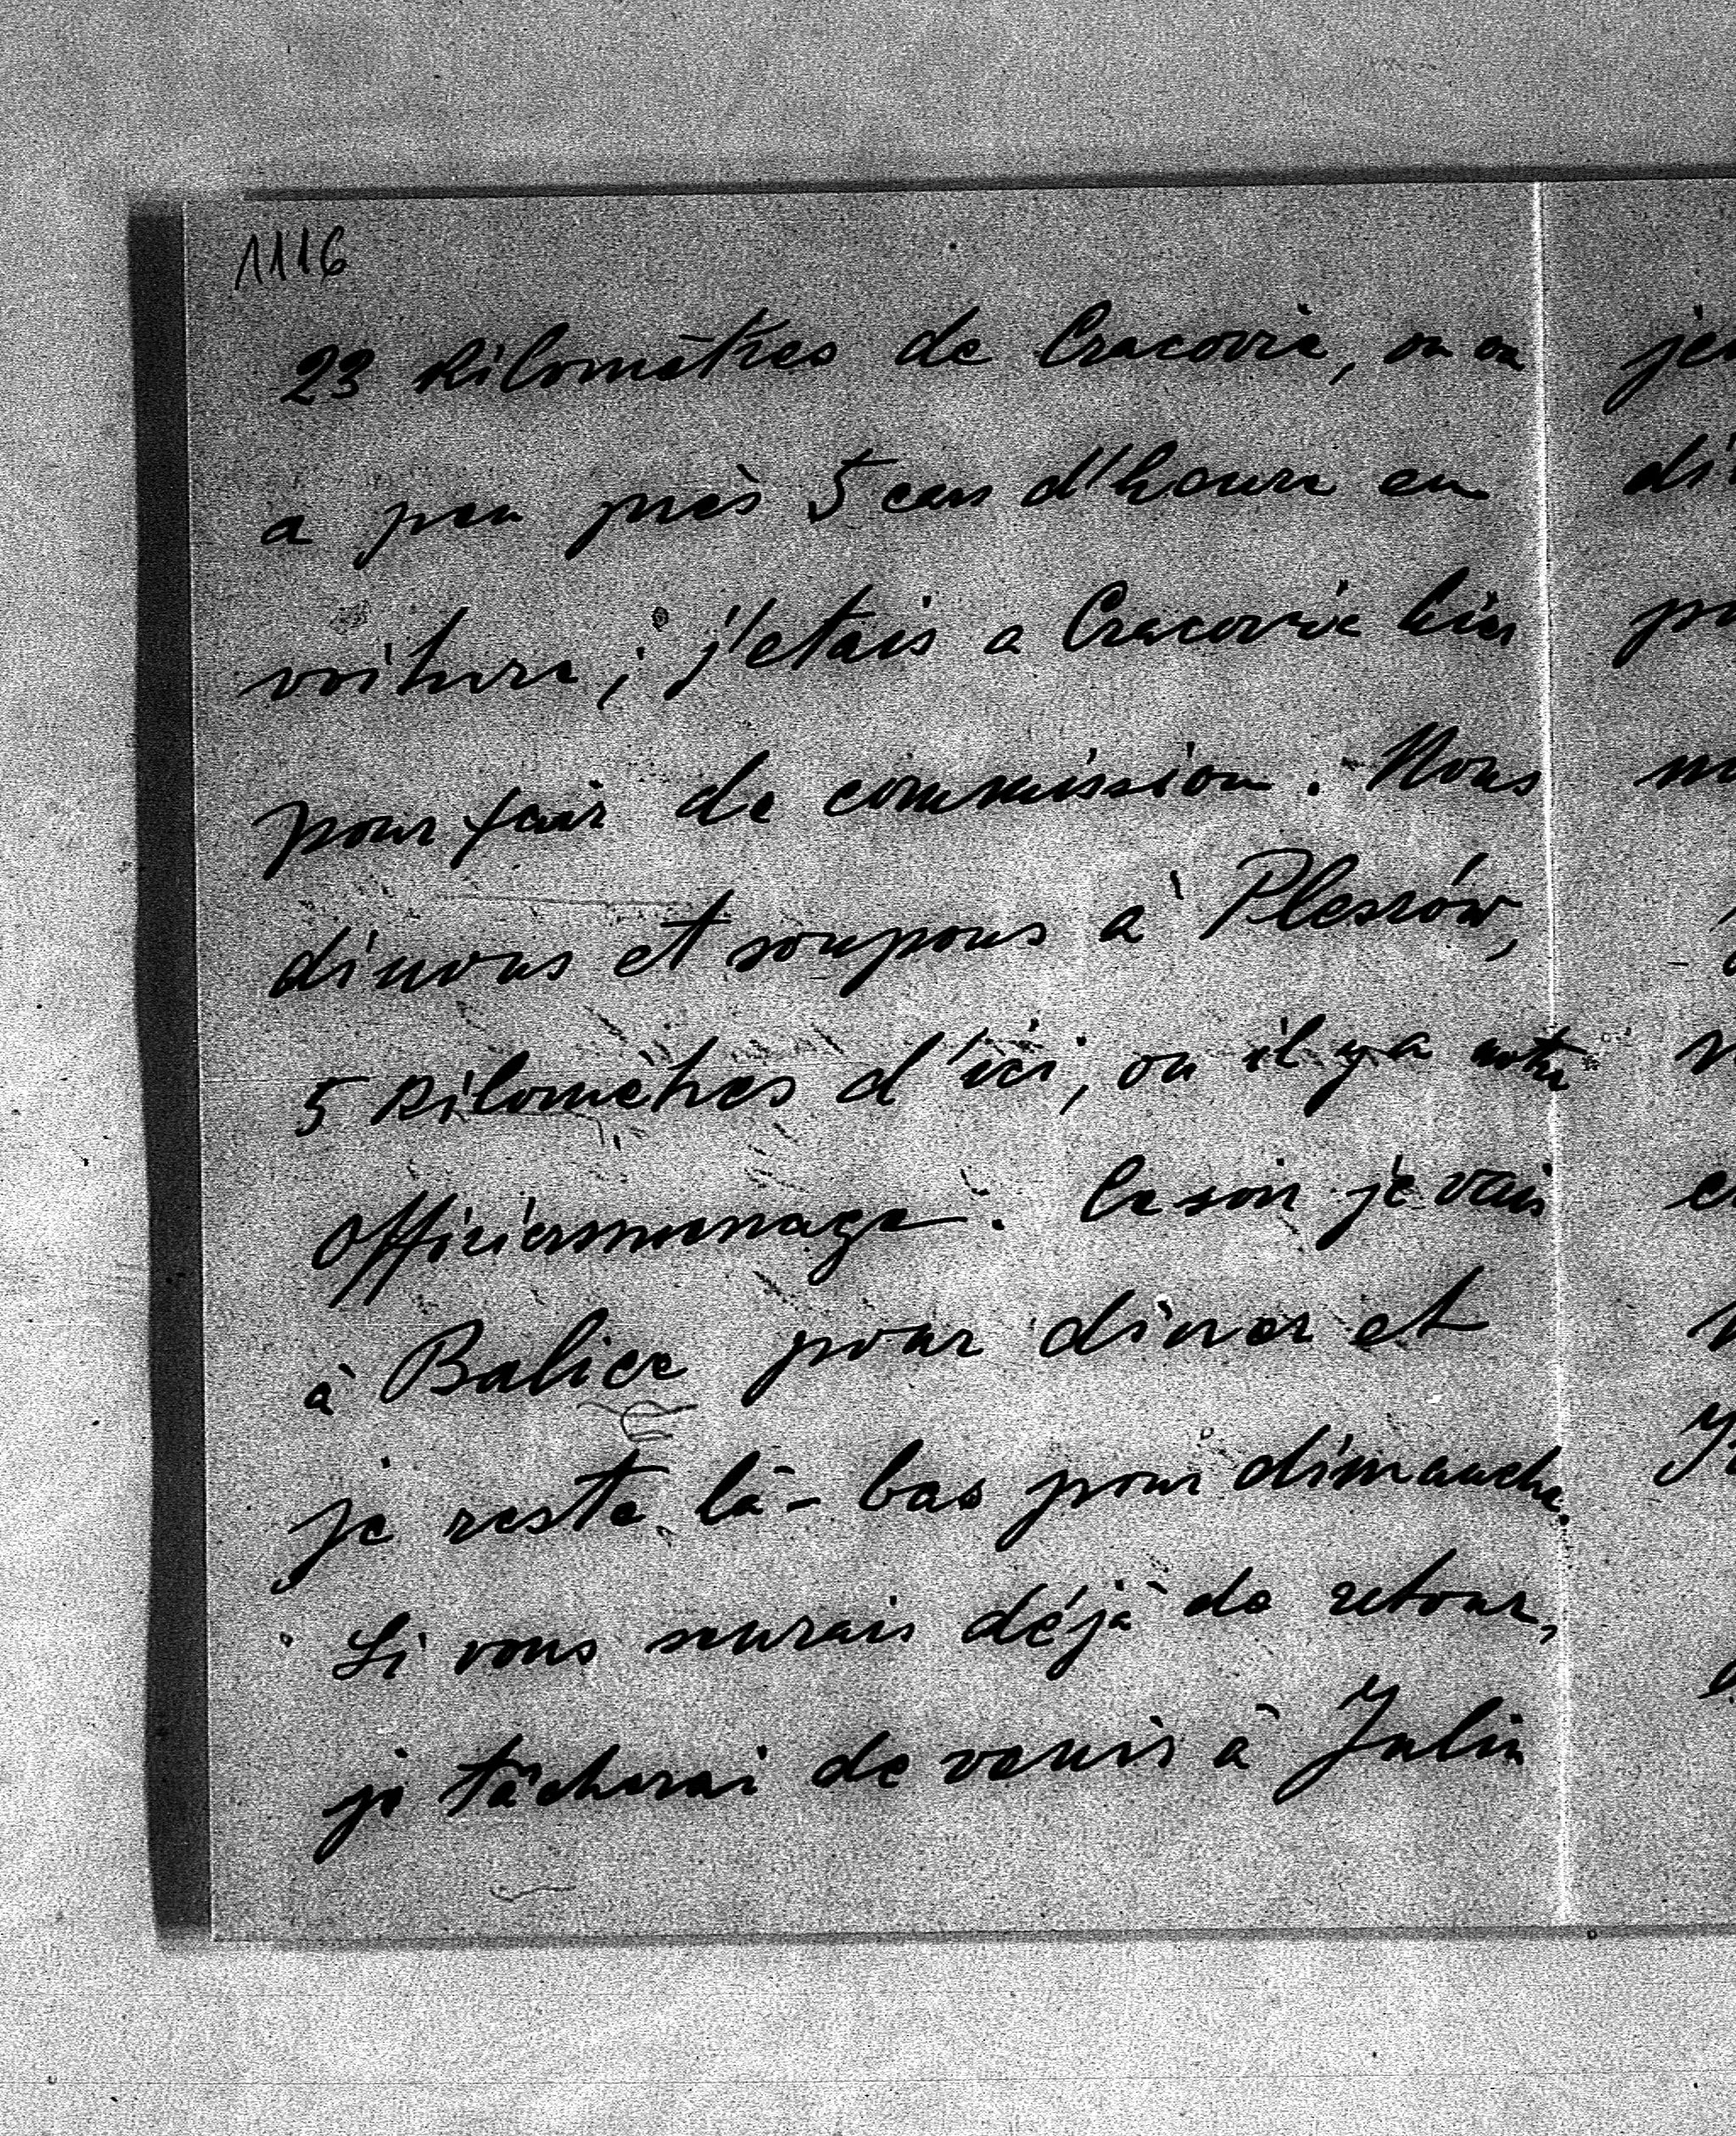 1116
23 kilomètres de Cracovie, on en
a peu près 5 cars d'heure en
voiture; j'etais a Cracovie hier
pour fair de commission. Nous
dinons et soupons à Pleszów,
5 kilomètres d'ici, ou il y a notre
Officiersmenage. Ce soir je vais
à Balice pour diner et
je reste là-bas pour dimanche.
Si vous serais déjà de retour,
je tâcherai de venir à Julin